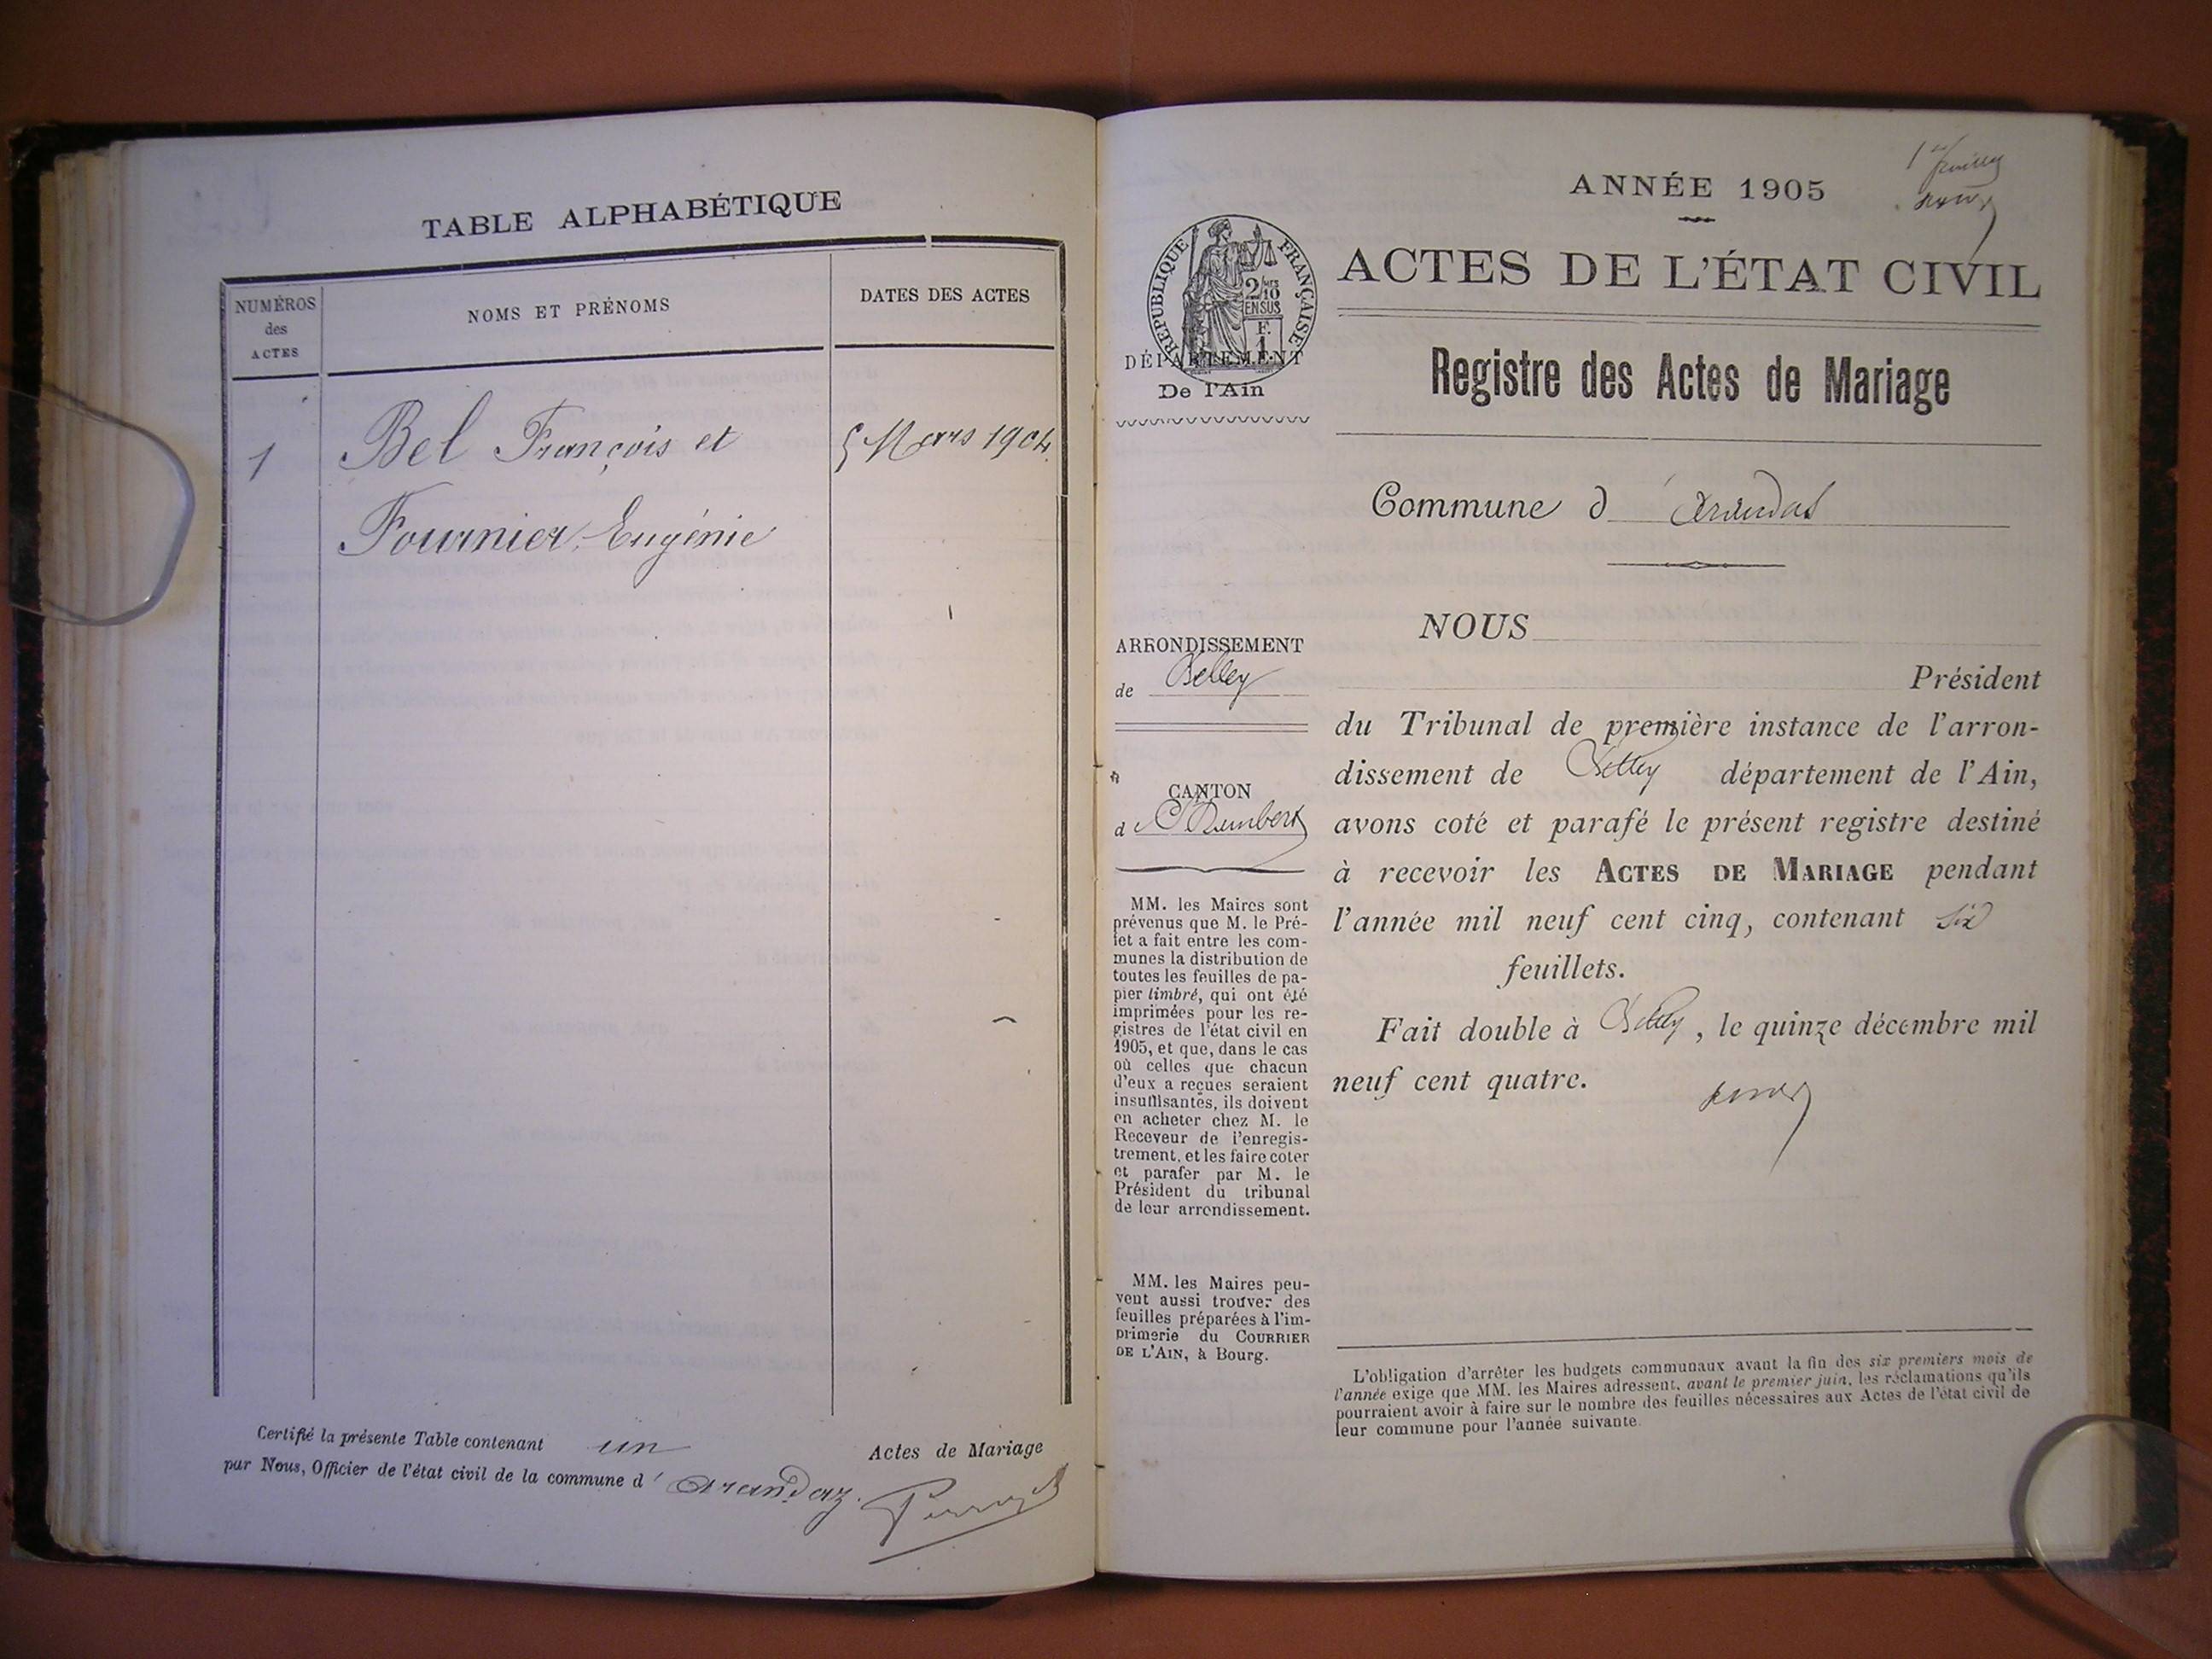 TABLE ALPHABÉTIQUE
NUMÉROS
des
ACTES
NOMS ET PRÉNOMS
DATES DES ACTES
1
Bel François et
5 Mars 1904.
Fournier Eugénie
Certifié la présente Table contenant un Actes de Mariage
par Nous, Officier de l'état civil de la commune d' Arandaz.
ANNÉE 1905
RÉPUBLIQUE FRANÇAISE
2/10 MES
EN SUS
F.
1.
DÉPARTEMENT
De l'Ain
ACTES DE L'ÉTAT CIVIL
Registre des Actes de Mariage
Commune d' Arandas
ARRONDISSEMENT
de Belley
CANTON
de St Rambert
MM. les Maires sont
prévenus que M. le Pré-
fet a fait entre les com-
munes la distribution de
toutes les feuilles de pa-
pier timbré, qui ont été
imprimées pour les re-
gistres de l'état civil en
1905, et que, dans le cas
où celles que chacun
d'eux a reçues seraient
insuffisantes, ils doivent
en acheter chez M. le
Receveur de l'enregis-
trement, et les faire coter
et parafer par M. le
Président du tribunal
de leur arrondissement.
MM. les Maires peu-
vent aussi trouver des
feuilles préparées à l'im-
primerie du COURRIER
DE L'AIN, à Bourg.
NOUS
Président
du Tribunal de première instance de l'arron-
dissement de Belley département de l'Ain,
avons coté et parafé le présent registre destiné
à recevoir les ACTES DE MARIAGE pendant
l'année mil neuf cent cinq, contenant six
feuillets.
Fait double à Belley, le quinze décembre mil
neuf cent quatre.
L'obligation d'arrêter les budgets communaux avant la fin des six premiers mois de
l'année exige que MM. les Maires adressent, avant le premier juin, les réclamations qu'ils
pourraient avoir à faire sur le nombre des feuilles nécessaires aux Actes de l'état civil de
leur commune pour l'année suivante.